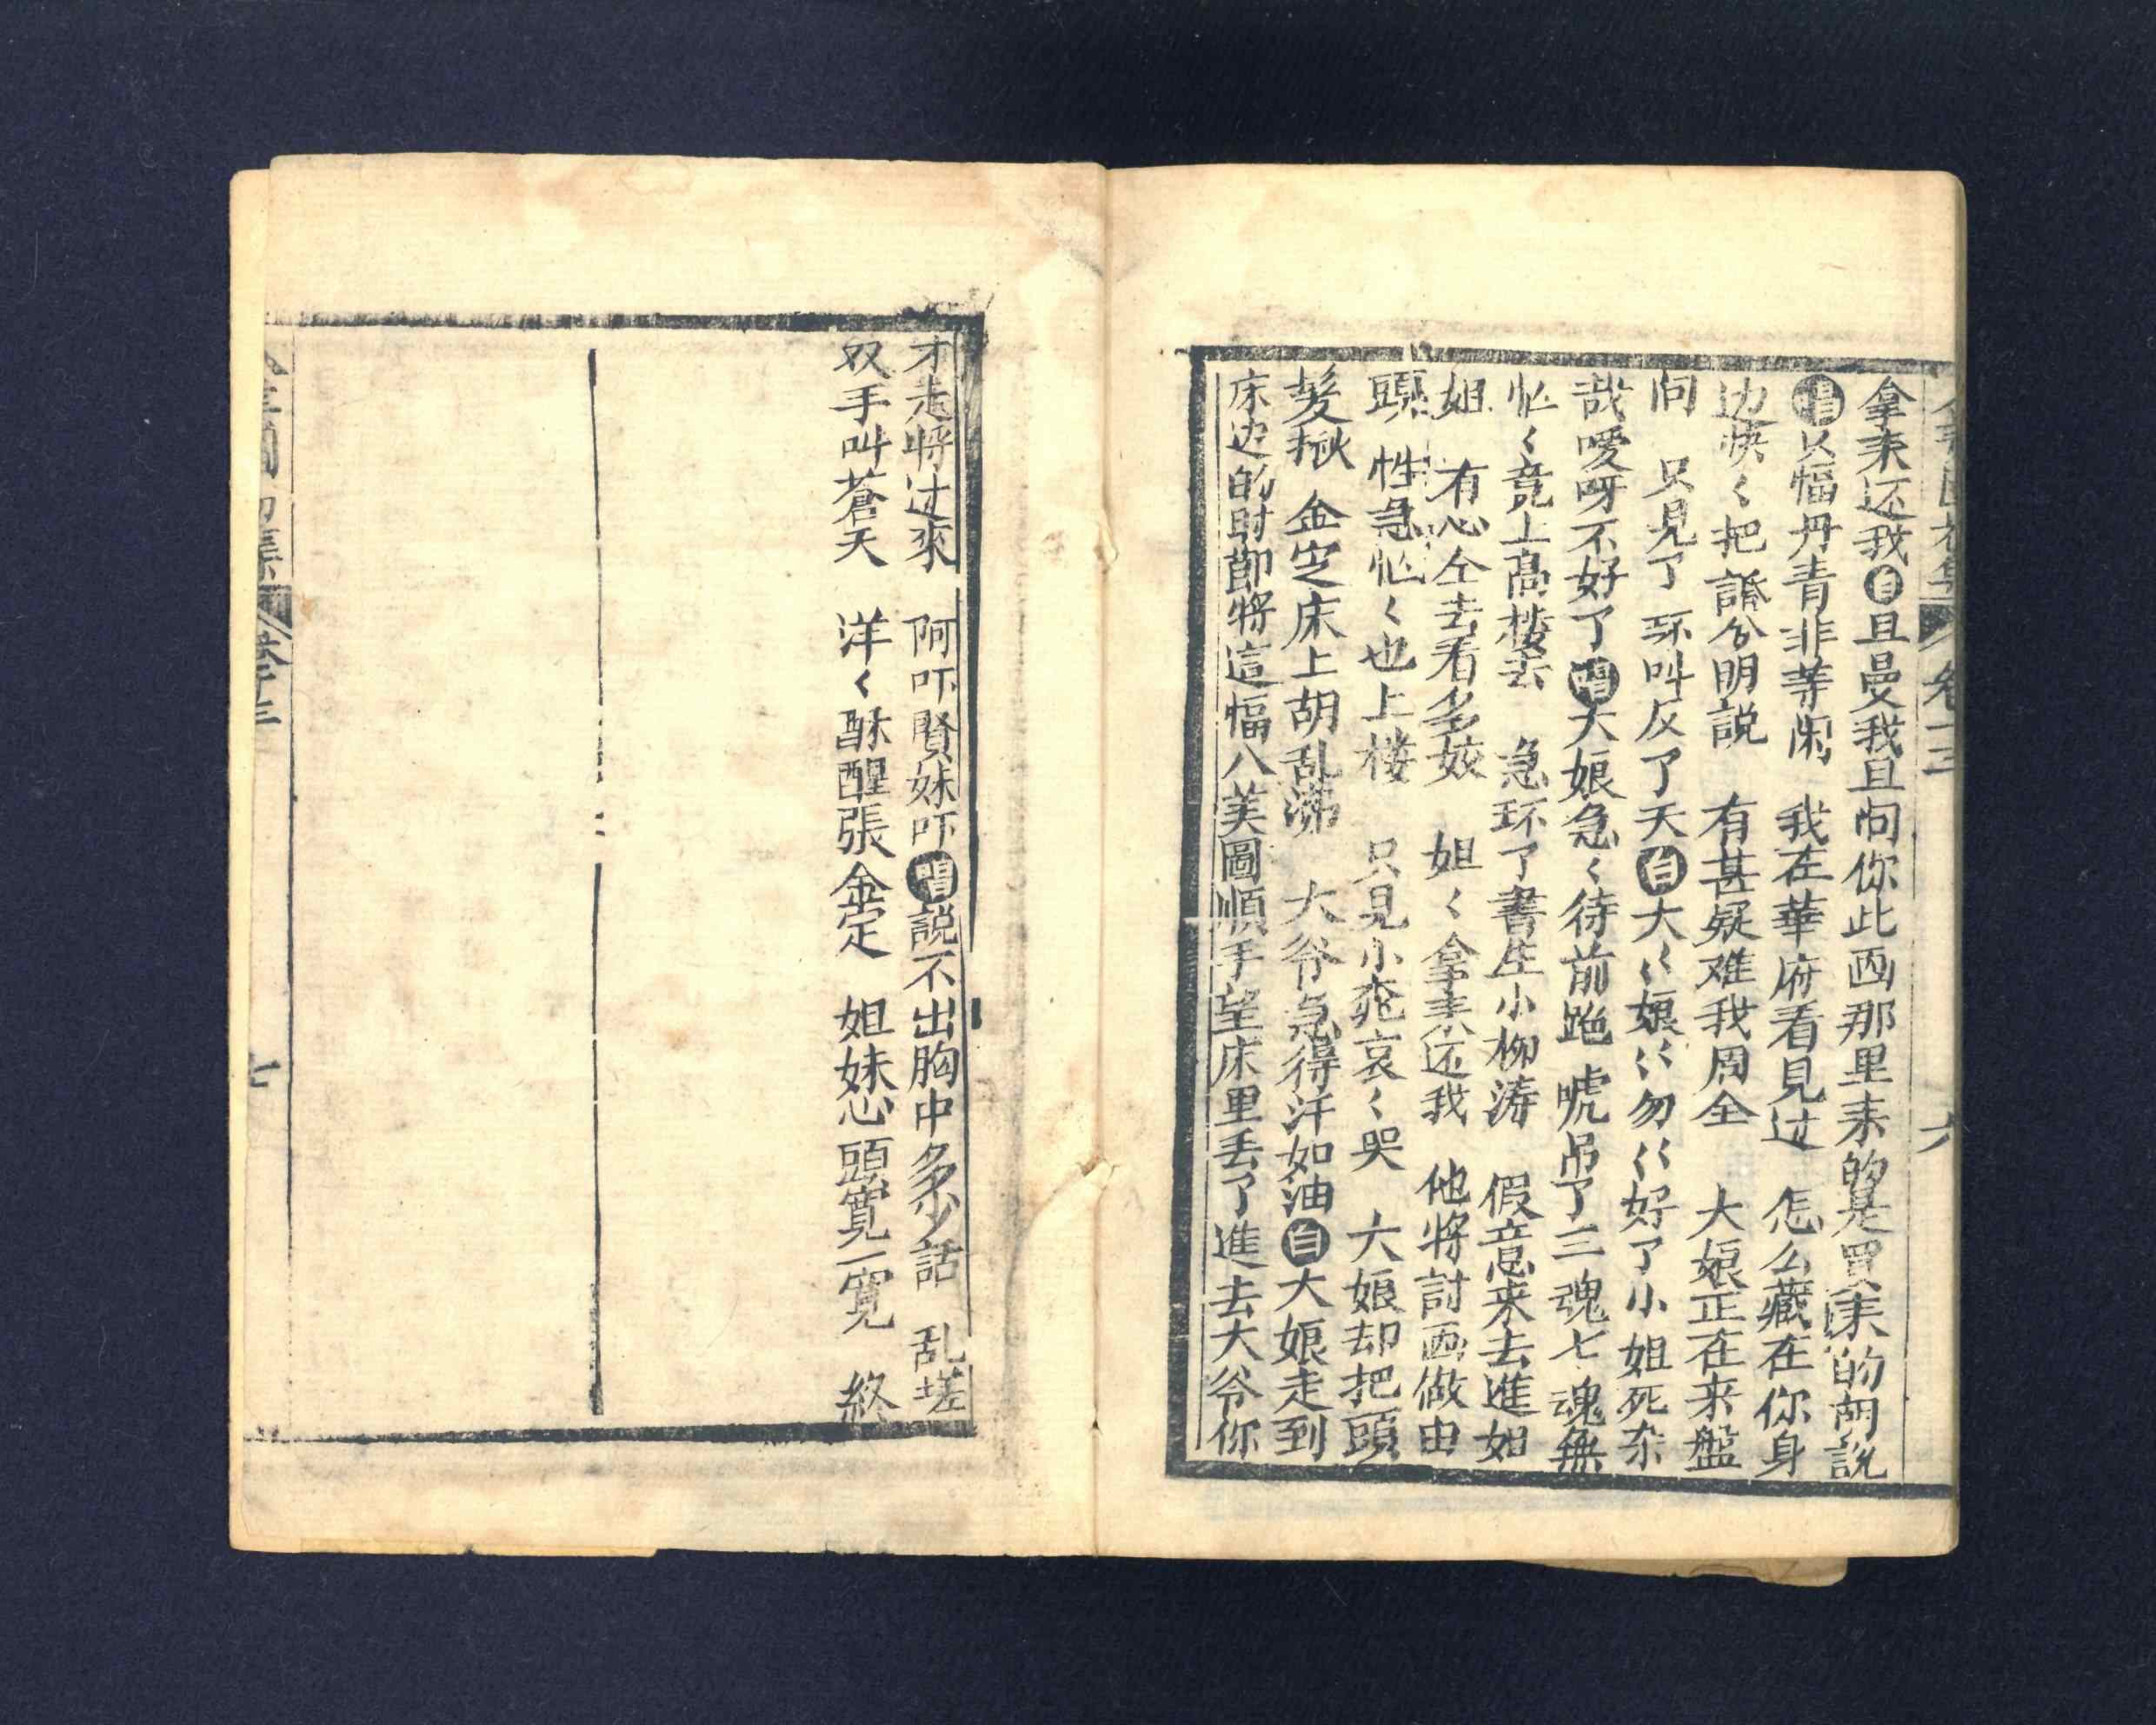 卷十三
六
拿来还我白且曼我且问你此画那里来的是買来的胡説
唱幅丹青非等闲　我在華府看見过　怎么藏在你身
边快〱把話分明説　有甚疑难我周全　大娘正在来盤
问　只見了环叫反了天白大〱娘〱勿〱好了小姐死在
哉嗳呀不好了唱大娘急〱待前跑　唬吊了三魂七魂無
忙〱竟上高楼去　急环了書生小柳涛　假意来去進如
姐　有心仝去看多姣　姐〱拿来还我　他将討画做由
頭　性急忙〱也上楼　只見小姣哀〱哭　大娘却把頭
髮揪　金定床上胡乱沸　大爷急得汗如油白大娘走到
床边的时節将這幅八美圖順手望床里丢了進去大爷你
才走将过來　阿吓賢妹吓唱説不出胸中多少話　乱搓
双手叫蒼天　洋〱酥醒張金定　姐妹心頭寬一寬　終
集　卷十三
七